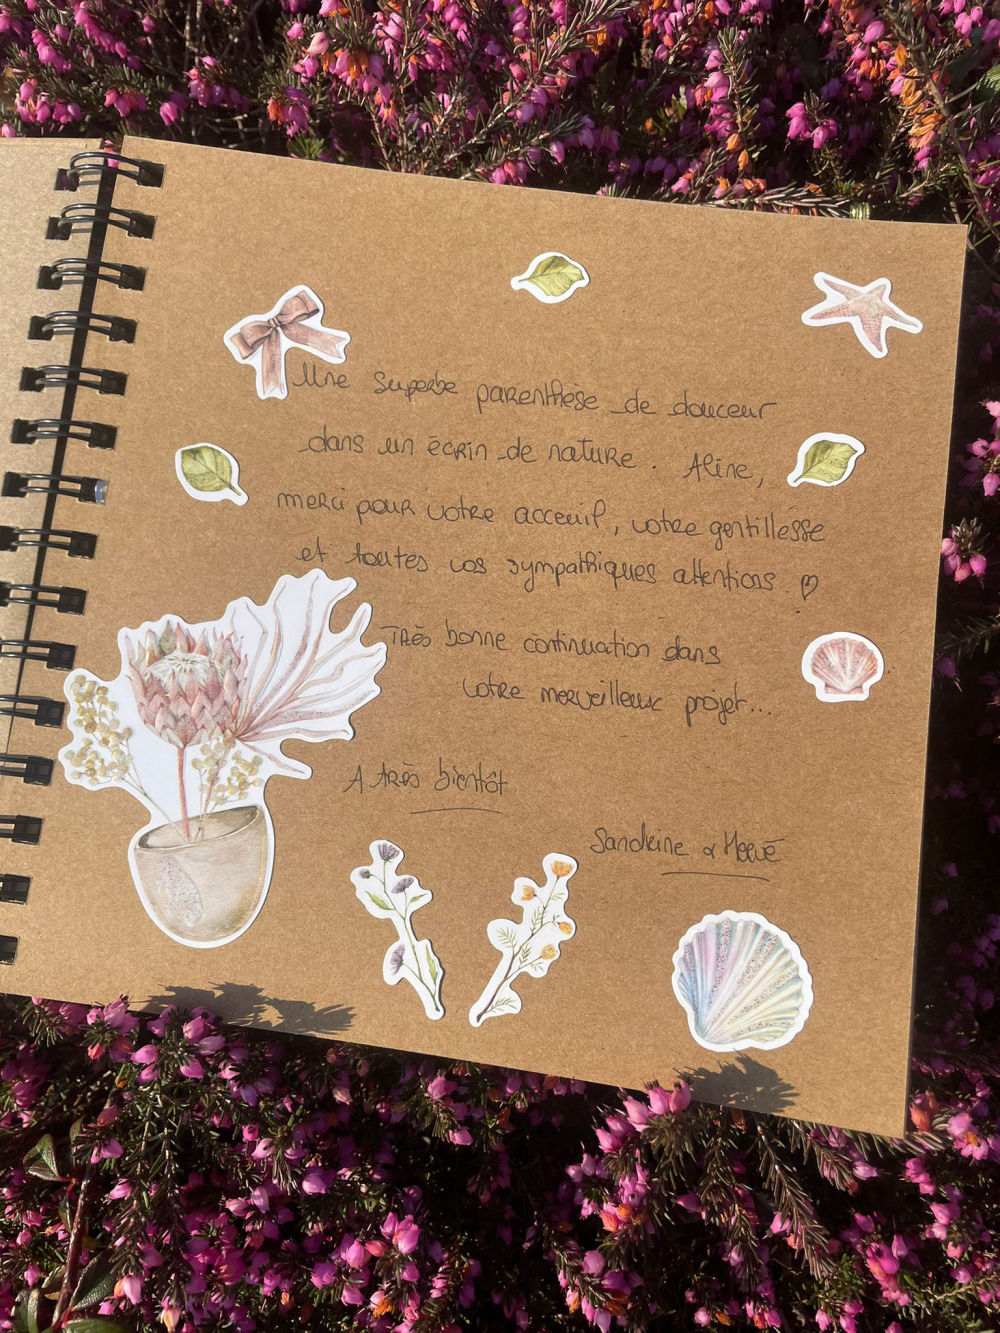 Une superbe parenthèse de douceur
dans un écrin de nature. Aline,
merci pour votre acceuil, votre gentillesse
et toutes vos sympathiques attentions ♡
Très bonne continuation dans
votre merveilleux projet...
A très bientôt
Sandrine & Hervé